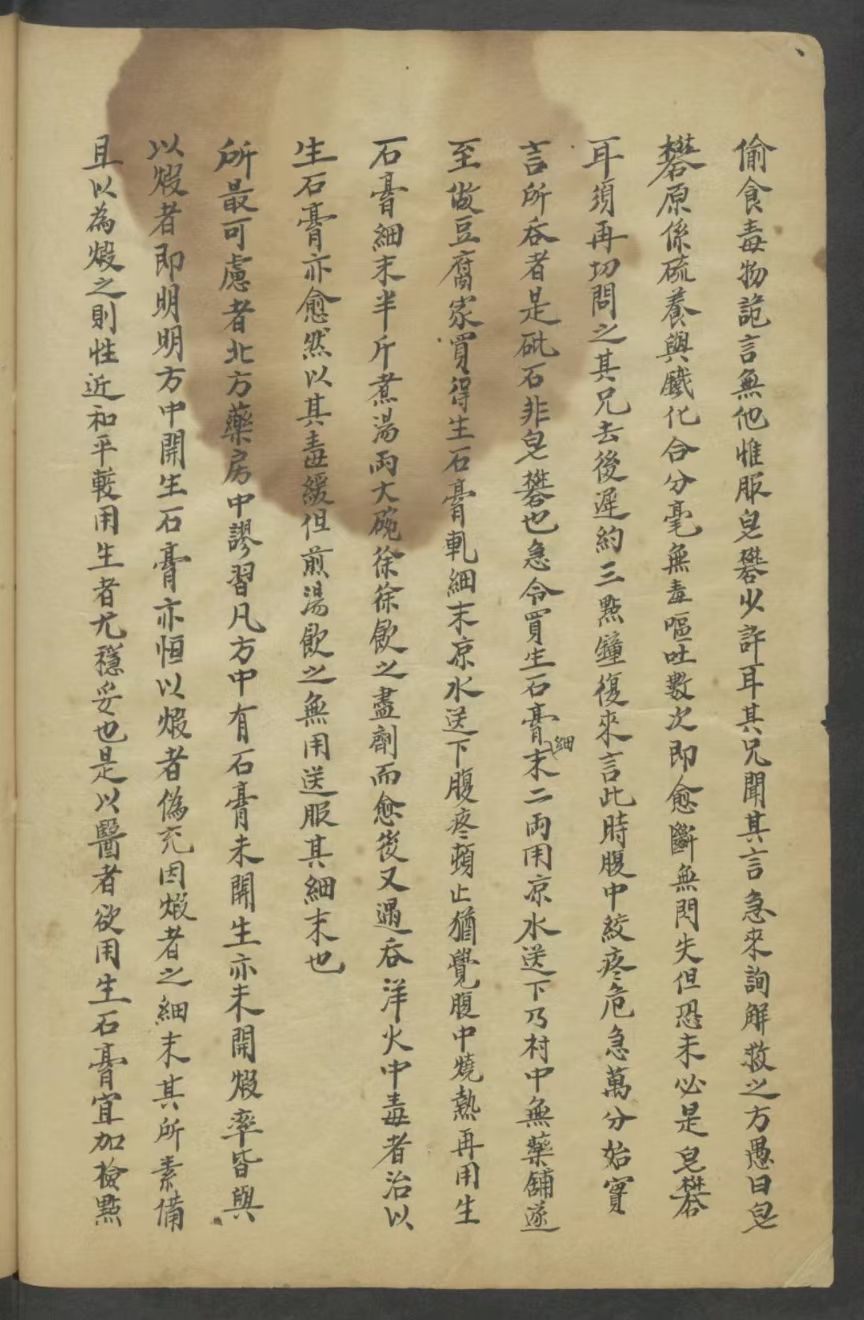 偷食毒物詭言無他惟服皂礬少許耳其兄聞其言急來詢解救之方愚曰皂
礬原係硫養與鐵化合分毫無毒嘔吐數次即愈斷無閃失但恐未必是皂礬
耳須再切問之其兄去後遲約三點鐘復來言此時腹中絞疼危急萬分始實
言所吞者是砒石非皂礬也急令買生石膏細末二兩用凉水送下乃村中無藥鋪遂
至做豆腐家買得生石膏軋細末凉水送下腹疼頓止猶覺腹中燒熱再用生
石膏細末半斤煮湯兩大碗徐徐飲之盡劑而愈後又遇吞洋火中毒者治以
生石膏亦愈然以其毒緩但煎湯飲之無用送服其細末也
所最可慮者北方藥房中謬習凡方中有石膏未開生亦未開煅率皆與
以煅者即明明方中開生石膏亦恒以煅者偽充因煅者之細末其所素備
且以為煅之則性近和平較用生者尤穩妥也是以醫者欲用生石膏宜加檢點